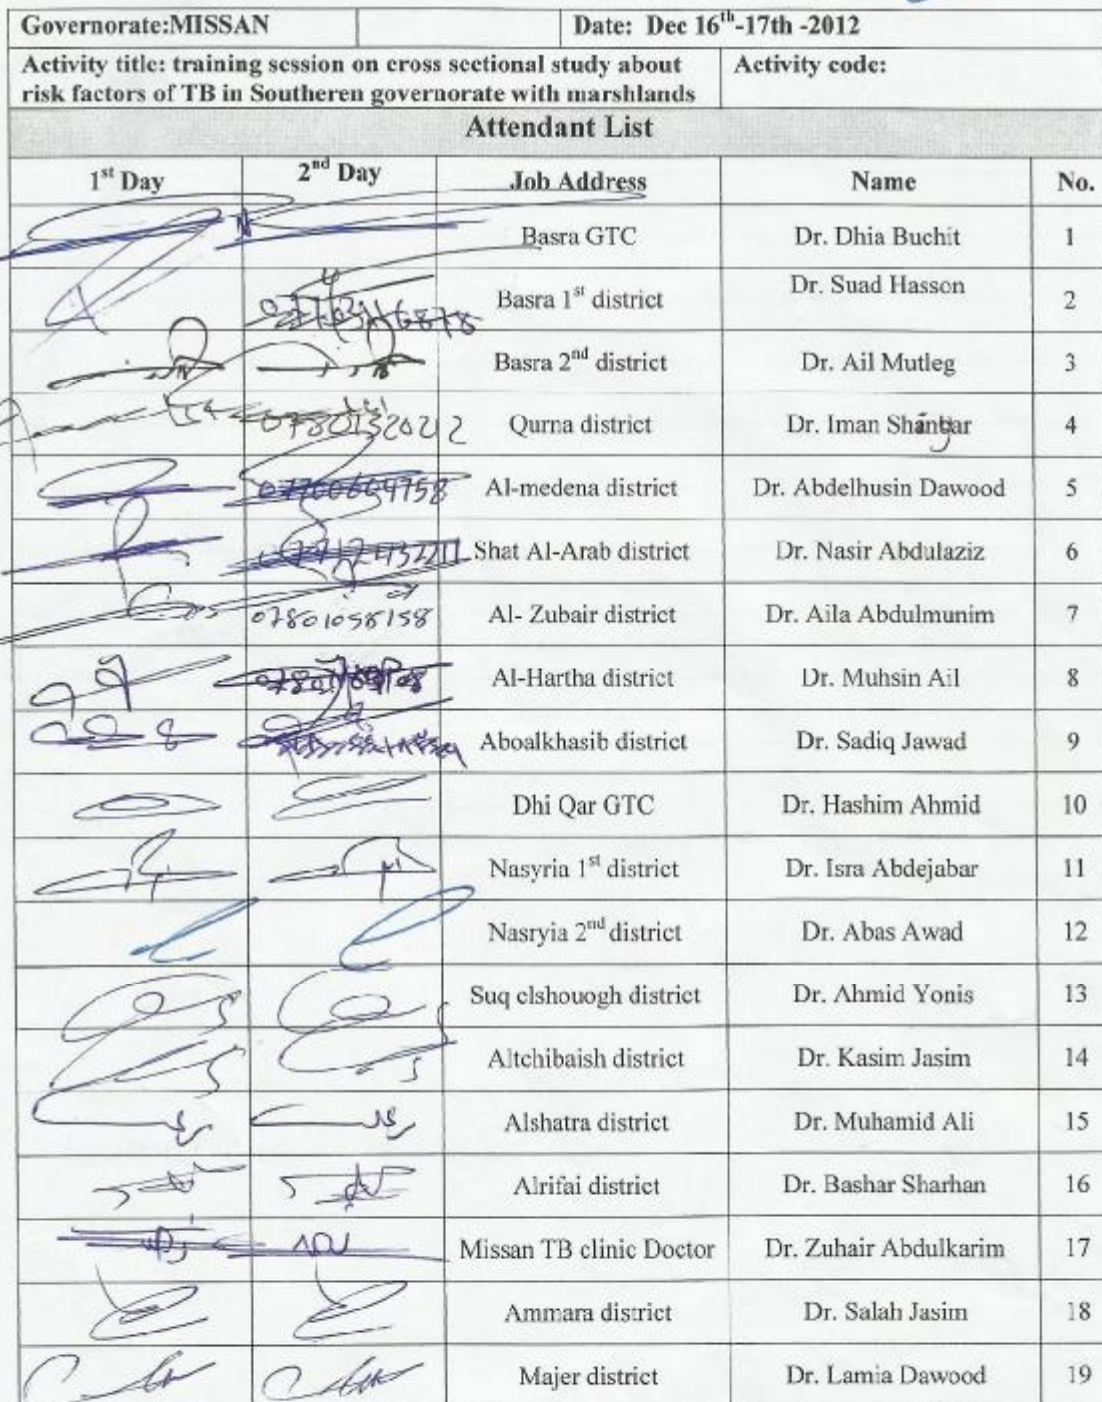 Governorate:MISSAN Date: Dec 16th-17th -2012
Activity title: training session on cross sectional study about Activity code:
risk factors of TB in Southeren governorate with marshlands
Attendant List
1st Day 2nd Day Job Address Name No.
Basra GTC Dr. Dhia Buchit 1
Basra 1st district Dr. Suad Hasson 2
Basra 2nd district Dr. Ail Mutleg 3
Qurna district Dr. Iman 4
07760609758 Al-medena district Dr. Abdelhusin Dawood 5
Shat Al-Arab district Dr. Nasir Abdulaziz 6
07801058158 Al- Zubair district Dr. Aila Abdulmunim 7
Al-Hartha district Dr. Muhsin Ail 8
Aboalkhasib district Dr. Sadiq Jawad 9
Dhi Qar GTC Dr. Hashim Ahmid 10
Nasyria 1st district Dr. Isra Abdejabar 11
Nasryia 2nd district Dr. Abas Awad 12
Suq elshouogh district Dr. Ahmid Yonis 13
Altchibaish district Dr. Kasim Jasim 14
Alshatra district Dr. Muhamid Ali 15
Alrifai district Dr. Bashar Sharhan 16
Missan TB clinic Doctor Dr. Zuhair Abdulkarim 17
Ammara district Dr. Salah Jasim 18
Majer district Dr. Lamia Dawood 19